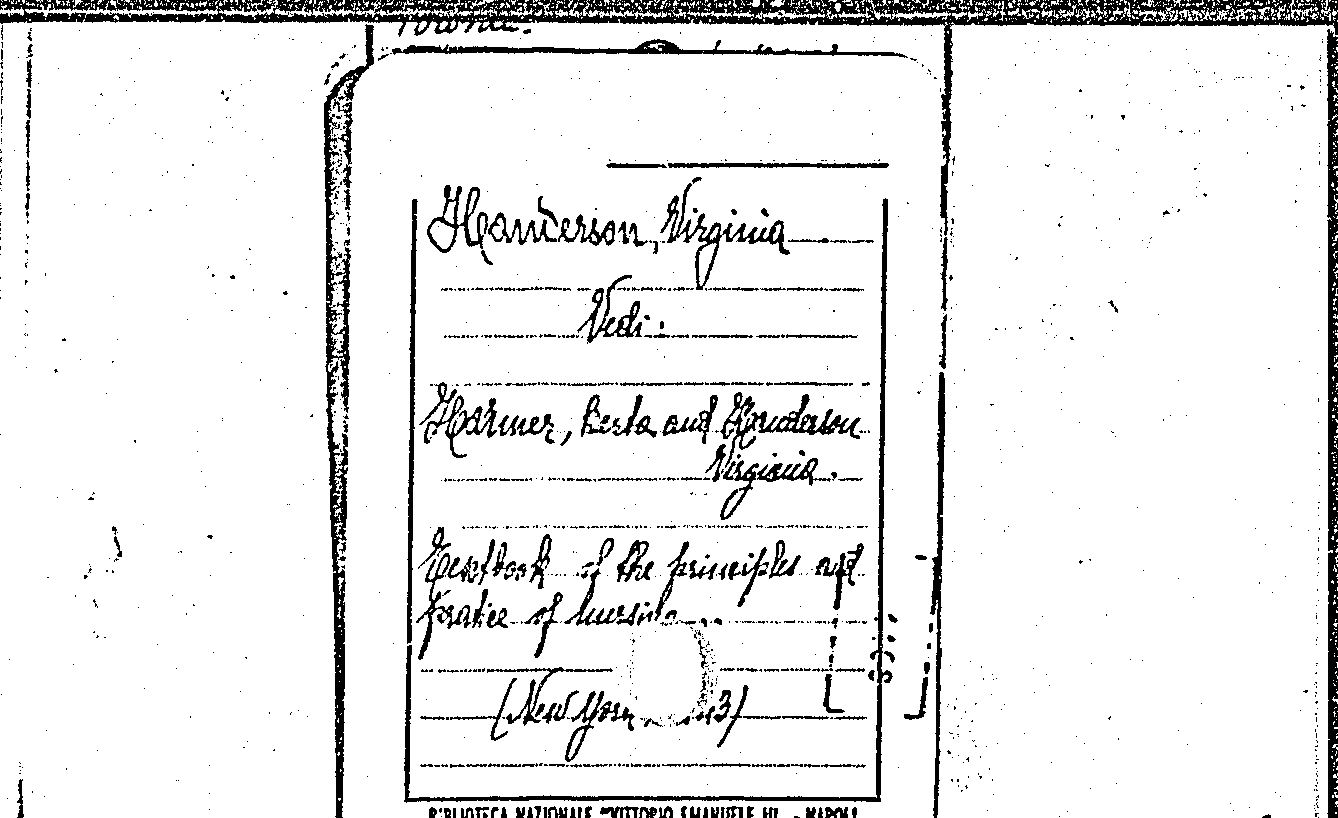 Handerson, Virginia
Vedi:
Harmer, Berta and Handerson
Virginia.
Textbook of the principles and
pratice of nursing...
(New York 3)
BIBLIOTECA NAZIONALE "VITTORIO EMANUELE III" - NAPOLI